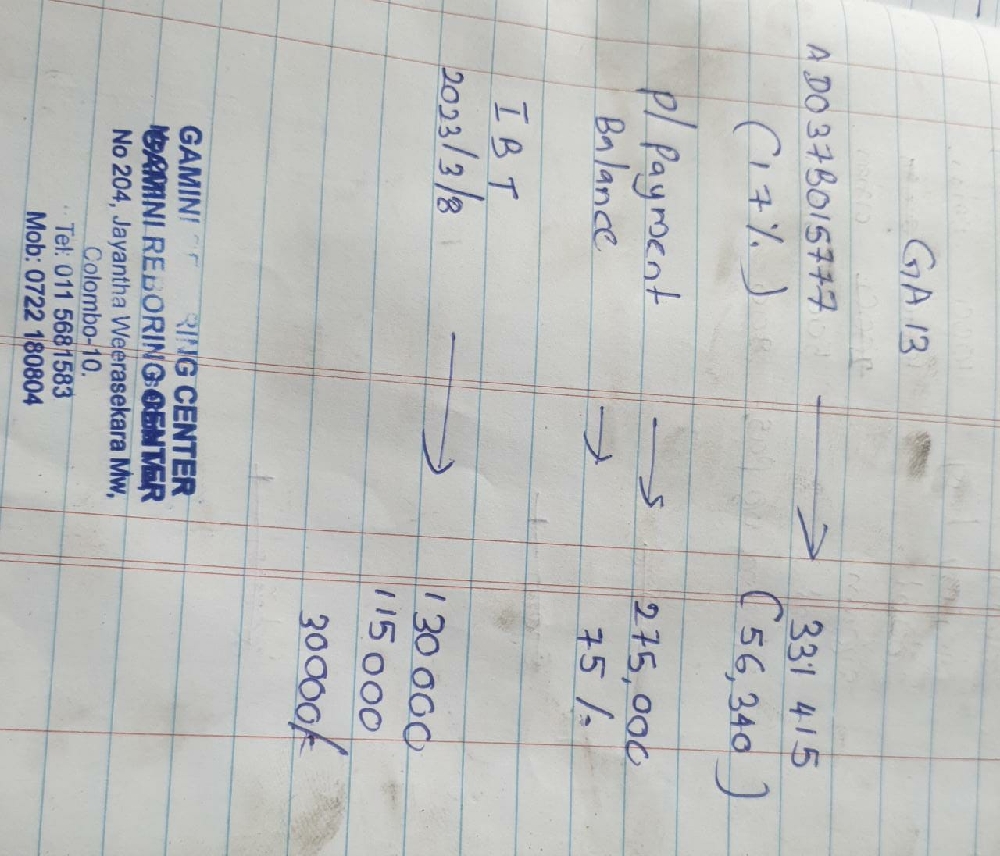 GA 13
AD037B015777 → 331 415
(17%) (56,340)
P/Payment → 275,000
Balance → 75/=
IBT
2023/3/8 → 130000
115000
30000/=
GAMINI RING CENTER
GAMINI REBORING CENTER
No 204, Jayantha Weerasekara Mw,
Colombo-10.
Tel: 011 5681583
Mob: 0722 180804